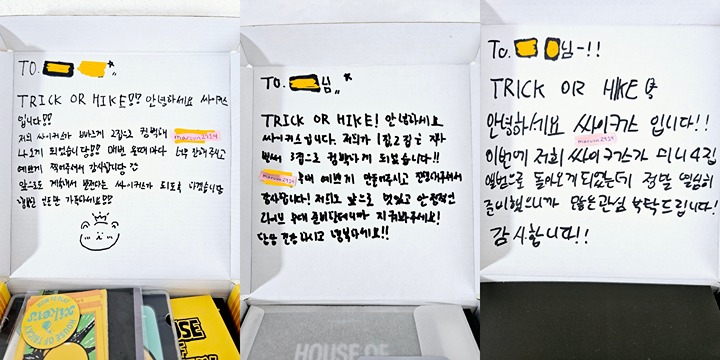 TO.
TRICK OR HIKE!! 안녕하세요 싸이커스
입니다!!
저희 싸이커스가 빠르게 2집으로 컴백해
maroun2929
나오게 되었습니당!! 매번 올때마다 너무 잘해주시고
예쁘게 찍어주셔서 감사합니당
앞으로 계속해서 발전하는 싸이커스가 되도록 하겠습니당
TO. 님
TRICK OR HIKE! 안녕하세요
싸이커스입니다. 저희가 1집 2집에
3집으로 컴백하게 되었습니다!!
maroun2929 예쁘게 만들어주시고
감사합니다! 저희도 앞으로 멋있고 안정적인
라이브 무대 준비할테니까 지켜봐주세요!
행복하세요!!
To. 님~!!
TRICK OR HIKE
안녕하세요 싸이커스 입니다!!
maroun2929
이번에 저희 싸이커스가 미니 4집
앨범으로 돌아오게 되었는데 정말 열심히
준비했으니까 많은 관심 부탁드립니다!
감사합니다!!
HOUSE OF TRICKY
xikers
HOW TO PLAY
HOUSE OF